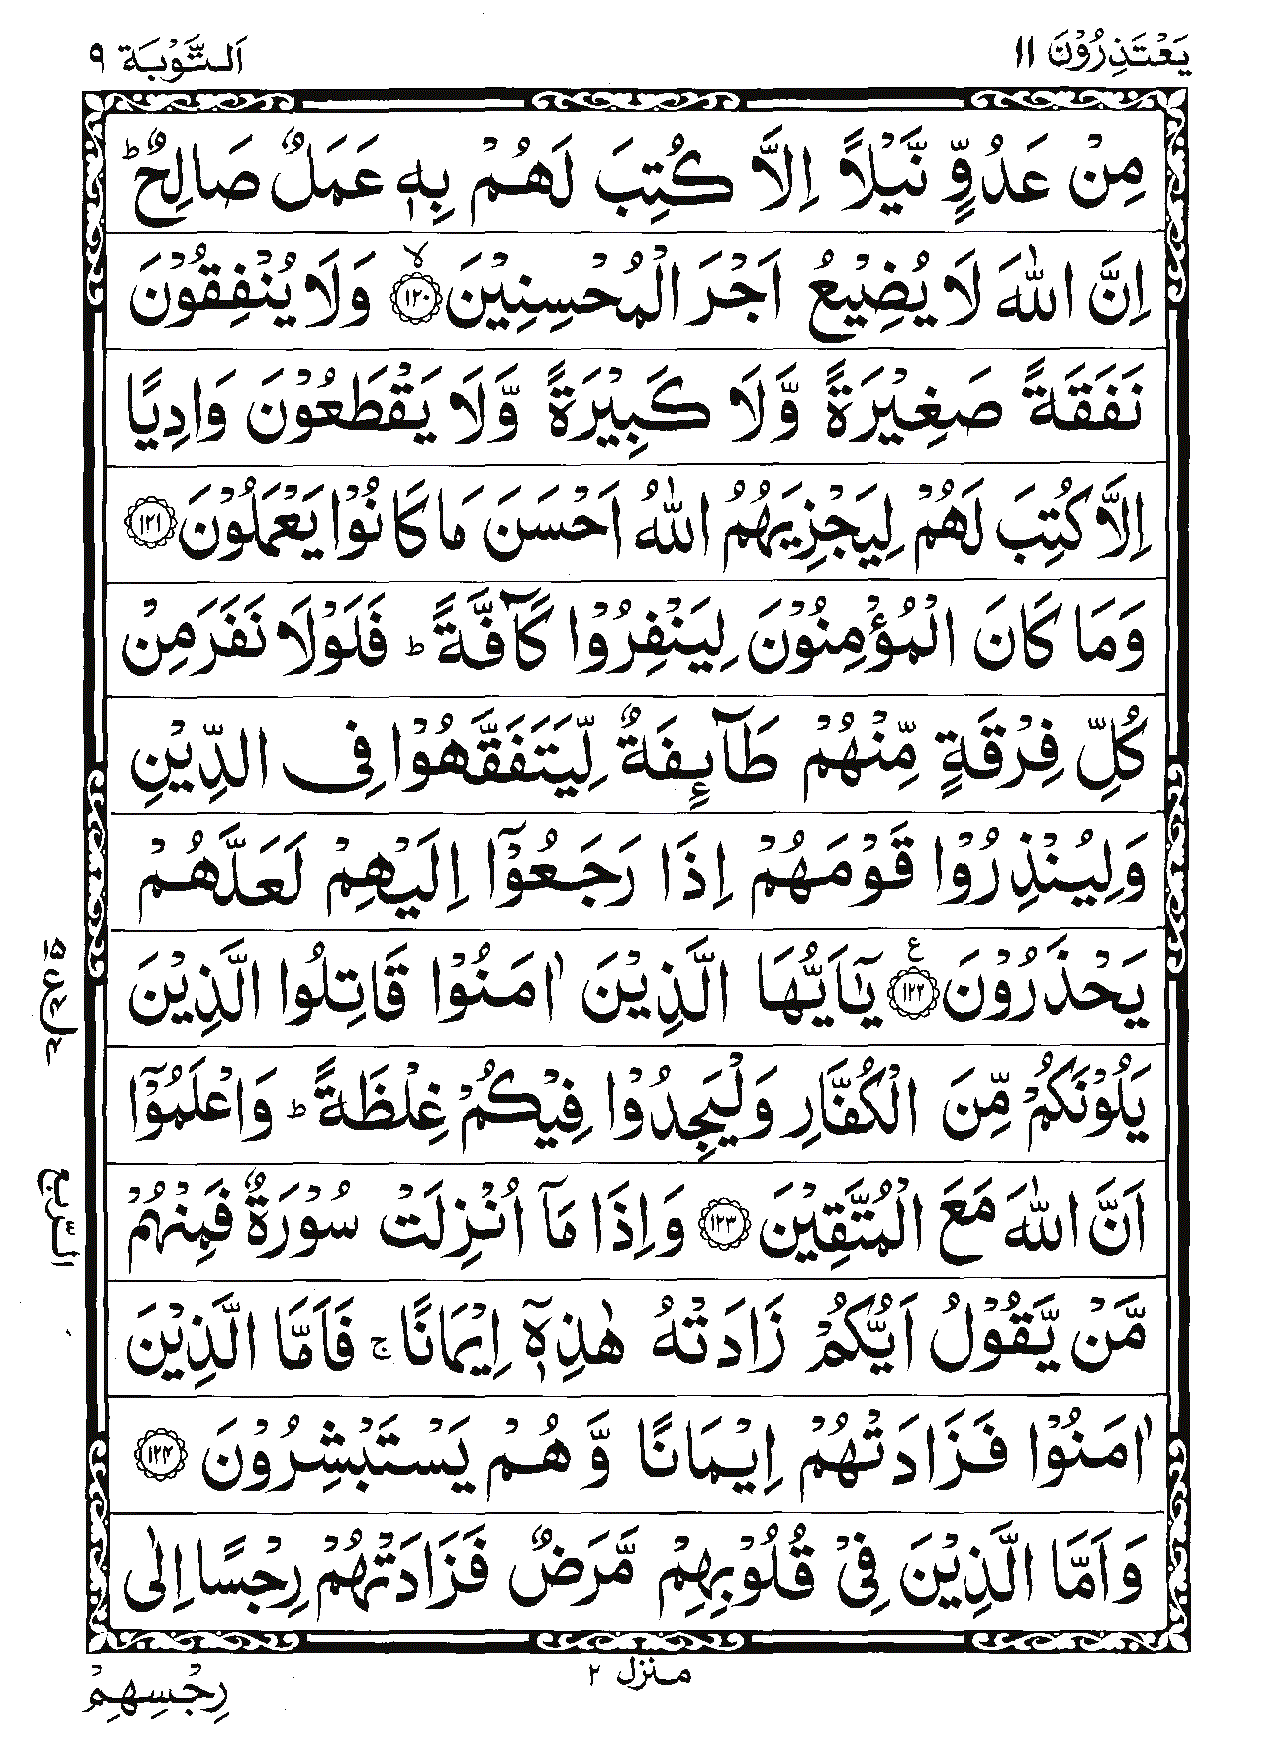 يَعْتَذِرُوْنَ ١١
اَلتَّوْبَة ٩
مِنْ عَدُوٍّ نَّيْلًا اِلَّا كُتِبَ لَهُمْ بِهٖ عَمَلٌ صَالِحٌ ؕ
اِنَّ اللّٰهَ لَا يُضِيْعُ اَجْرَ الْمُحْسِنِيْنَ ۙ ﴿١٢٠﴾ وَلَا يُنْفِقُوْنَ
نَفَقَةً صَغِيْرَةً وَّلَا كَبِيْرَةً وَّلَا يَقْطَعُوْنَ وَادِيًا
اِلَّا كُتِبَ لَهُمْ لِيَجْزِيَهُمُ اللّٰهُ اَحْسَنَ مَا كَانُوْا يَعْمَلُوْنَ ﴿١٢١﴾
وَمَا كَانَ الْمُؤْمِنُوْنَ لِيَنْفِرُوْا كَآفَّةً ؕ فَلَوْلَا نَفَرَ مِنْ
كُلِّ فِرْقَةٍ مِّنْهُمْ طَآٮِٕفَةٌ لِّيَتَفَقَّهُوْا فِى الدِّيْنِ
وَلِيُنْذِرُوْا قَوْمَهُمْ اِذَا رَجَعُوْۤا اِلَيْهِمْ لَعَلَّهُمْ
يَحْذَرُوْنَ ﴿١٢٢﴾ ع يٰۤاَيُّهَا الَّذِيْنَ اٰمَنُوْا قَاتِلُوا الَّذِيْنَ
يَلُوْنَكُمْ مِّنَ الْكُفَّارِ وَلْيَجِدُوْا فِيْكُمْ غِلْظَةً ؕ وَاعْلَمُوْۤا
اَنَّ اللّٰهَ مَعَ الْمُتَّقِيْنَ ﴿١٢٣﴾ وَاِذَا مَاۤ اُنْزِلَتْ سُوْرَةٌ فَمِنْهُمْ
الربع
مَّنْ يَّقُوْلُ اَيُّكُمْ زَادَتْهُ هٰذِهٖۤ اِيْمَانًا ۚ فَاَمَّا الَّذِيْنَ
اٰمَنُوْا فَزَادَتْهُمْ اِيْمَانًا وَّهُمْ يَسْتَبْشِرُوْنَ ﴿١٢٤﴾
وَاَمَّا الَّذِيْنَ فِىْ قُلُوْبِهِمْ مَّرَضٌ فَزَادَتْهُمْ رِجْسًا اِلٰى
منزل ٢
رِجْسِهِمْ